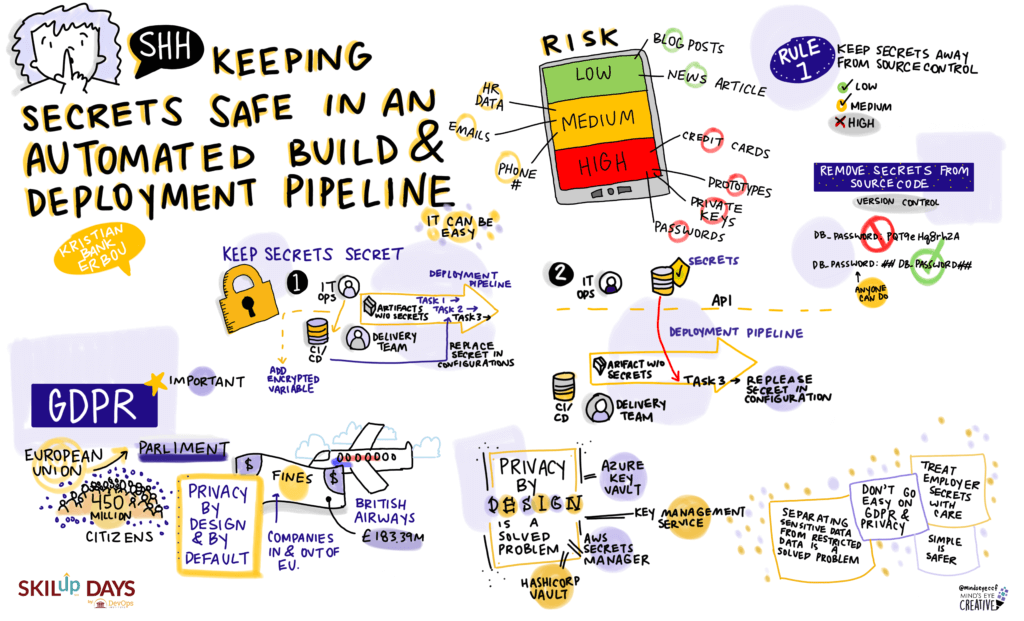 SHH
KEEPING
SECRETS SAFE IN AN
AUTOMATED BUILD &
DEPLOYMENT PIPELINE
KRISTIAN
BANK
ERBOU
RISK
LOW
MEDIUM
HIGH
BLOG POSTS
NEWS ARTICLE
HR
DATA
EMAILS
PHONE
#
CREDIT CARDS
PROTOTYPES
PRIVATE
KEYS
PASSWORDS
RULE
1
KEEP SECRETS AWAY
FROM SOURCE CONTROL
LOW
MEDIUM
HIGH
REMOVE SECRETS FROM
SOURCECODE
VERSION CONTROL
DB_PASSWORD: PQT9eHq8rh2A
DB_PASSWORD: ## DB_PASSWORD##
ANYONE
CAN DO
IT CAN BE
EASY
KEEP SECRETS SECRET
1
IT
OPS
DEPLOYMENT
PIPELINE
TASK 1
TASK 2
TASK3
ARTIFACTS
W/O SECRETS
CI/
CD
DELIVERY
TEAM
REPLACE
SECRET IN
CONFIGURATIONS
ADD
ENCRYPTED
VARIABLE
2
IT
OPS
SECRETS
API
DEPLOYMENT PIPELINE
ARIFACT W/O
SECRETS
TASK 3
REPLEASE
SECRET IN
CONFIGURATION
CI/
CD
DELIVERY
TEAM
GDPR
IMPORTANT
EUROPEAN
UNION
PARLIMENT
450
MILLION
CITIZENS
PRIVACY
BY
DESIGN
& BY
DEFAULT
$
FINES
$
COMPANIES
IN & OUT OF
EU.
BRITISH
AIRWAYS
£183.39M
PRIVACY
BY
DESIGN
IS A
SOLVED
PROBLEM
AZURE
KEY
VAULT
KEY MANAGEMENT
SERVICE
AWS
SECRETS
MANAGER
HASHICORP
VAULT
SEPARATING
SENSITIVE DATA
FROM RESTRICTED
DATA IS A
SOLVED PROBLEM
DON'T GO
EASY ON
GDPR &
PRIVACY
TREAT
EMPLOYER
SECRETS
WITH
CARE
SIMPLE IS
SAFER
SKILup DAYS
by DevOps
@mindseyeccf
MIND'S EYE
CREATIVE